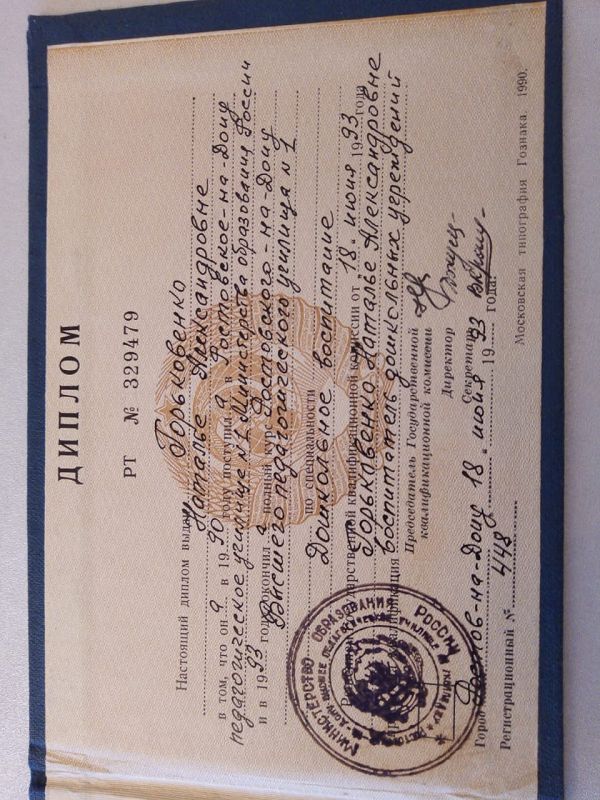 ДИПЛОМ
РТ № 329479
Настоящий диплом выдан Горьковенко
Наталье Александровне
в том, что она в 1990 году поступила в Ростовское-на-Дону
педагогическое училище №1 Министерства образования России
и в 1993 году окончила полный курс Ростовского-на-Дону
Высшего педагогического училища №1
по специальности
Дошкольное воспитание
Государственной квалификационной комиссии от 18 июня 1993 года
Горьковенко Наталье Александровне
квалификация воспитатель дошкольных учреждений
Председатель Государственной
квалификационной комиссии
Директор
Секретарь
Город Ростов-на-Дону 18 июня 1993 года.
Регистрационный № 448
Московская типография Гознака. 1990.
МИНИСТЕРСТВО ОБРАЗОВАНИЯ РОССИИ